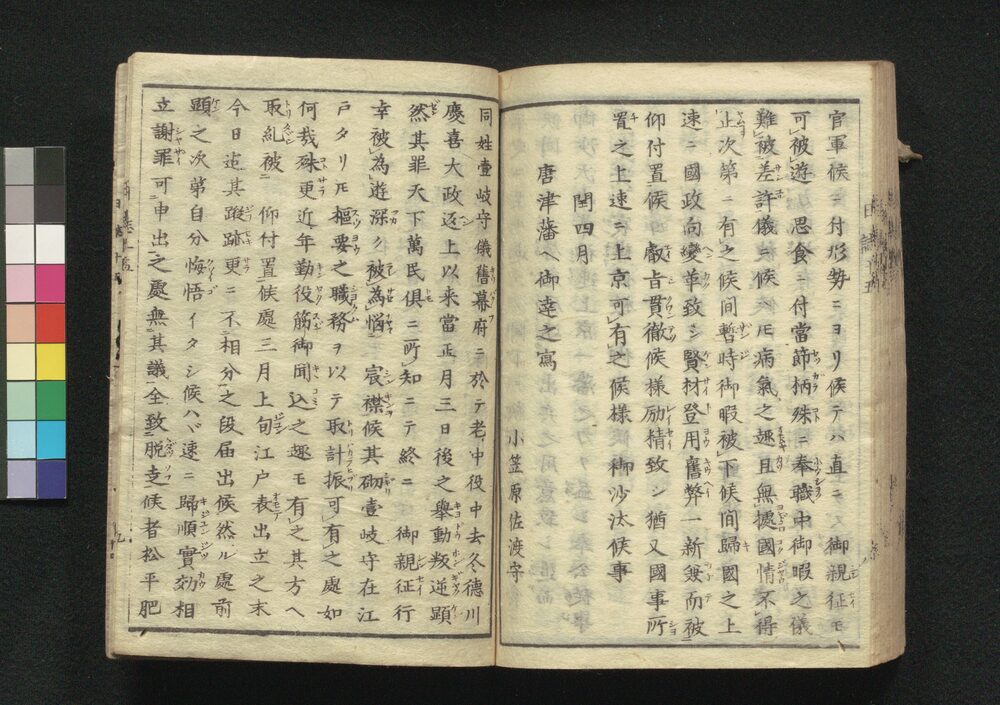 官軍候ニ付形勢ニヨリ候テハ直ニ又御親征モ
可被遊ト思食ニ付當節柄殊ニ奉職中御暇之儀
難被差許儀ニ候ヘ𪜈病氣之趣且無據國情不得
止次第ニ有之候間暫時御暇被下候間歸國之上
速ニ國政向變革致シ賢材登用舊弊一新爾而被
仰付置候御趣旨貫徹候樣励精致シ猶又國事所
置之上速ニ上京可有之候樣御沙汰候事
閏四月
唐津藩ヘ御達之寫
小笠原佐渡守
同姓壹岐守儀舊幕府ニ於テ老中役中去冬德川
慶喜大政返上以來當正月三日後之擧動叛逆顯
然其罪天下萬民俱ニ所知ニテ終ニ 御親征行
幸被為遊深ク被為惱 宸襟候其砌壹岐守在江
戸タリ𪜈樞要之職務ヲ以テ取計振可有之處如
何哉殊更近年勤役筋御聞込之趣モ有之其方ヘ
取糺被 仰付置候處三月上旬江戸表出立之末
今日迄其蹤跡更ニ不相分之段届出候然ル處前
顯之次第自分悔悟イタシ候ハヾ速ニ歸順實効相
立謝罪可申出之處無其議全致脱走候者松平肥